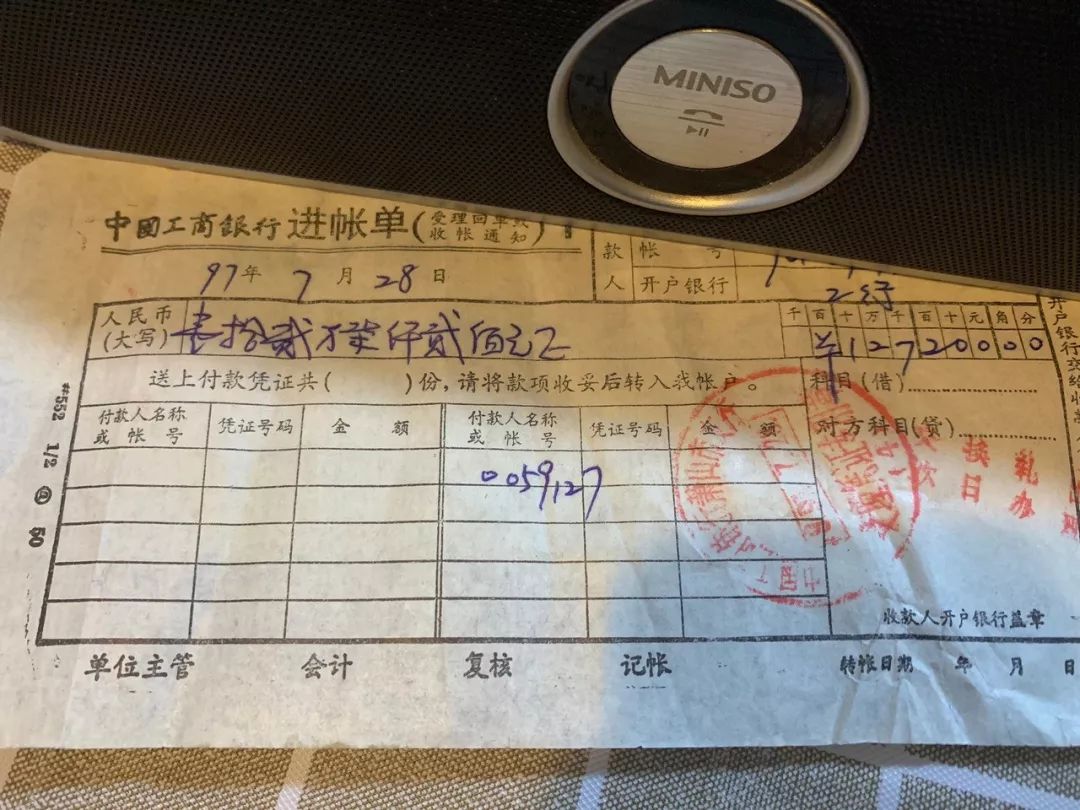 MINISO
中國工商銀行进帐单(受理回单或收帐通知)1
97年 7月 28日
款人 帐号
开户银行 2行
人民币(大写) 壹拾贰万柒仟贰佰元正
千百十万千百十元角分
¥12720000
送上付款凭证共( )份,请将款项收妥后转入我帐户。
科目(借)
付款人名称或帐号 凭证号码 金额 付款人名称或帐号 凭证号码 金额
对方科目(贷)
0059127
收款人开户银行盖章
单位主管 会计 复核 记帐 转帐日期 年 月 日
#552 1/2 50